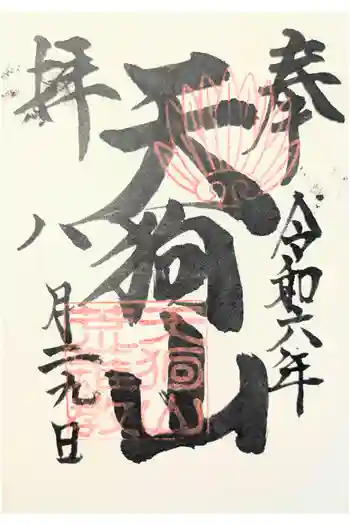 奉拝
天狗山
令和六年
八月二九日